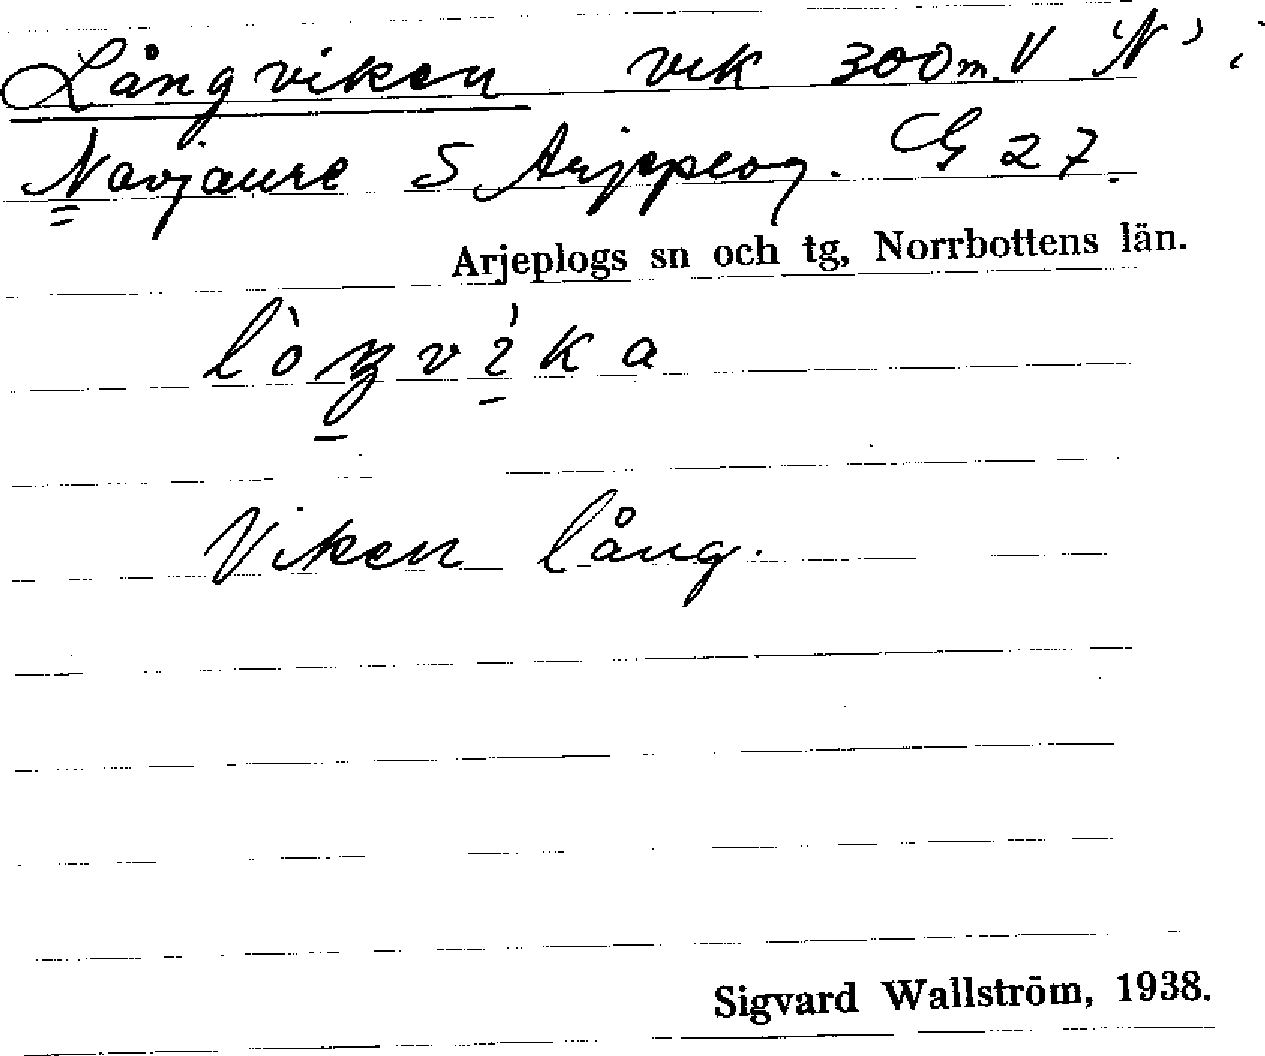 Långviken vik 300m. V 'N' i
Navjaure S Arjeplog. G 27.
Arjeplogs sn och tg, Norrbottens län.
lòŋvíka
Viken lång.
Sigvard Wallström, 1938.